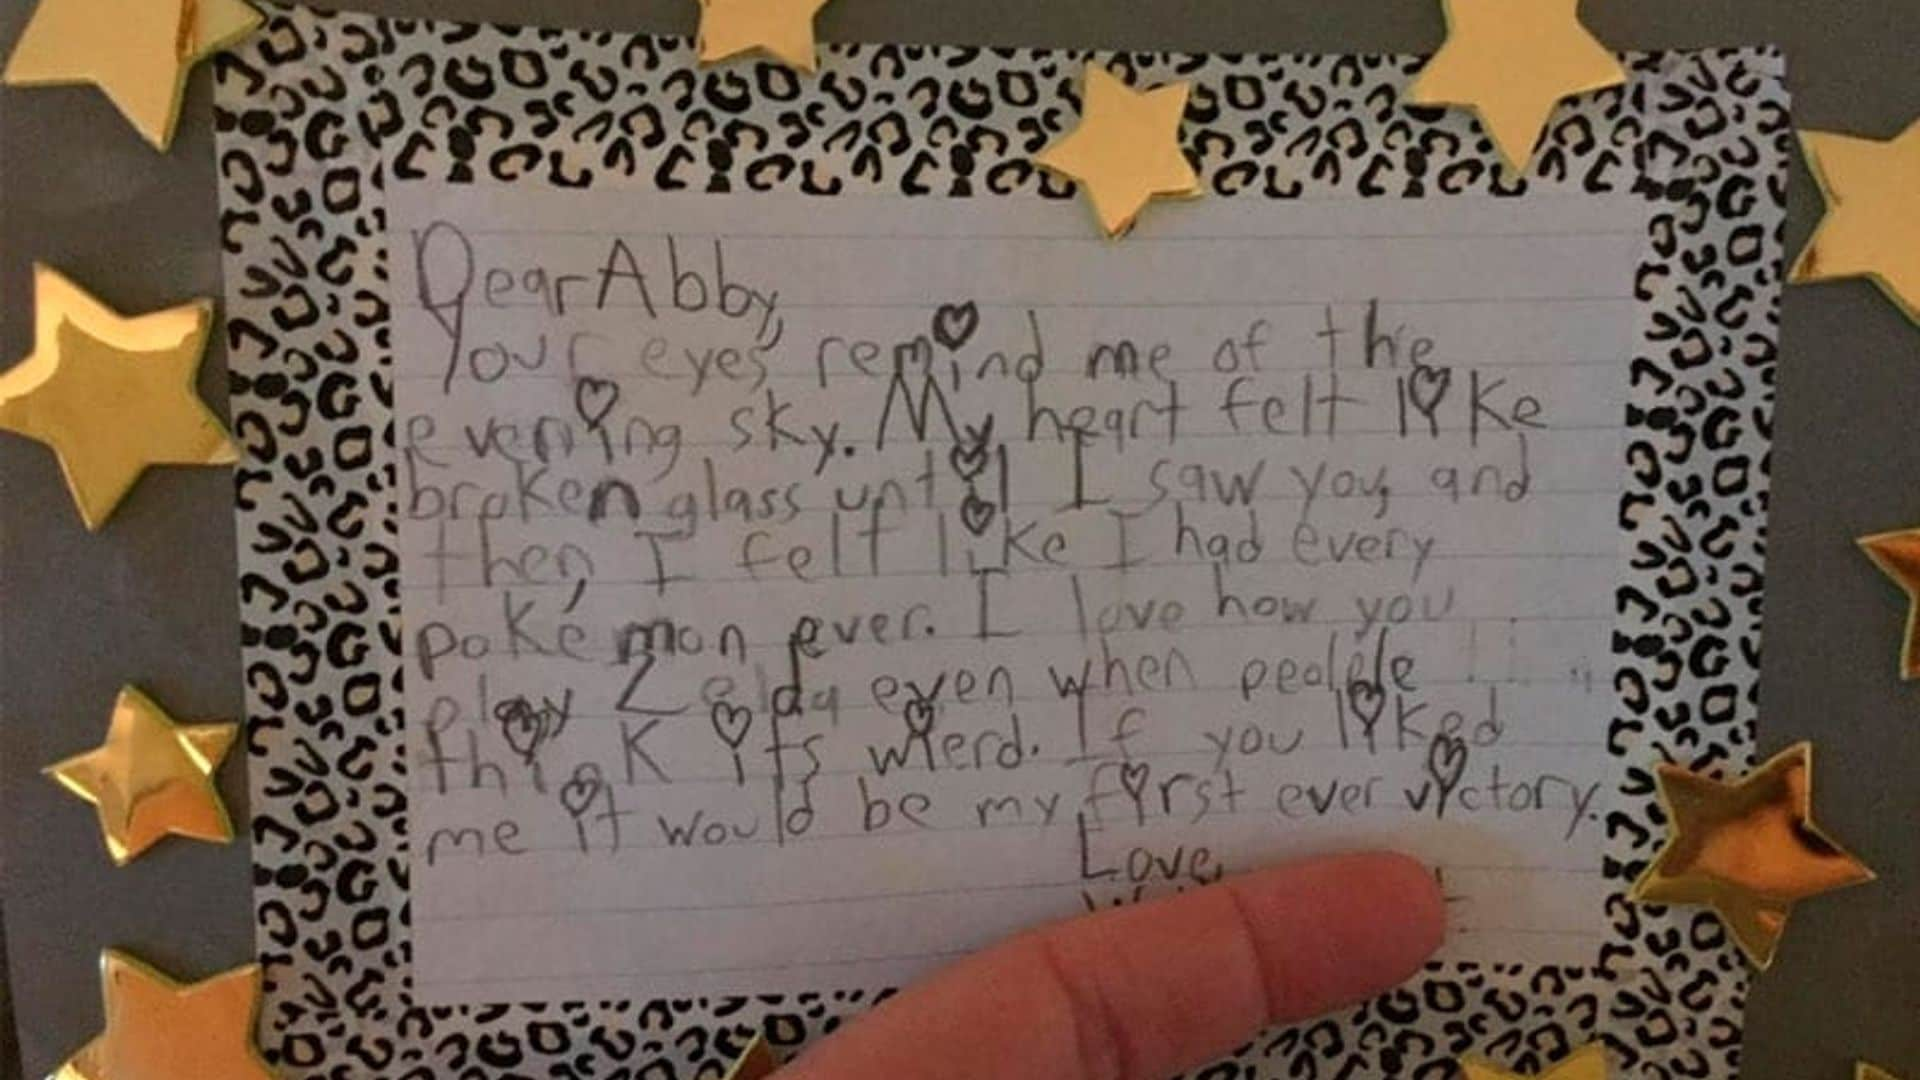 Dear Abby,
Your eyes remind me of the
evening sky. My heart felt like
broken glass until I saw you, and
then, I felt like I had every
pokémon ever. I love how you
play Zelda even when people
think its wierd. If you liked
me it would be my first ever victory.
Love,